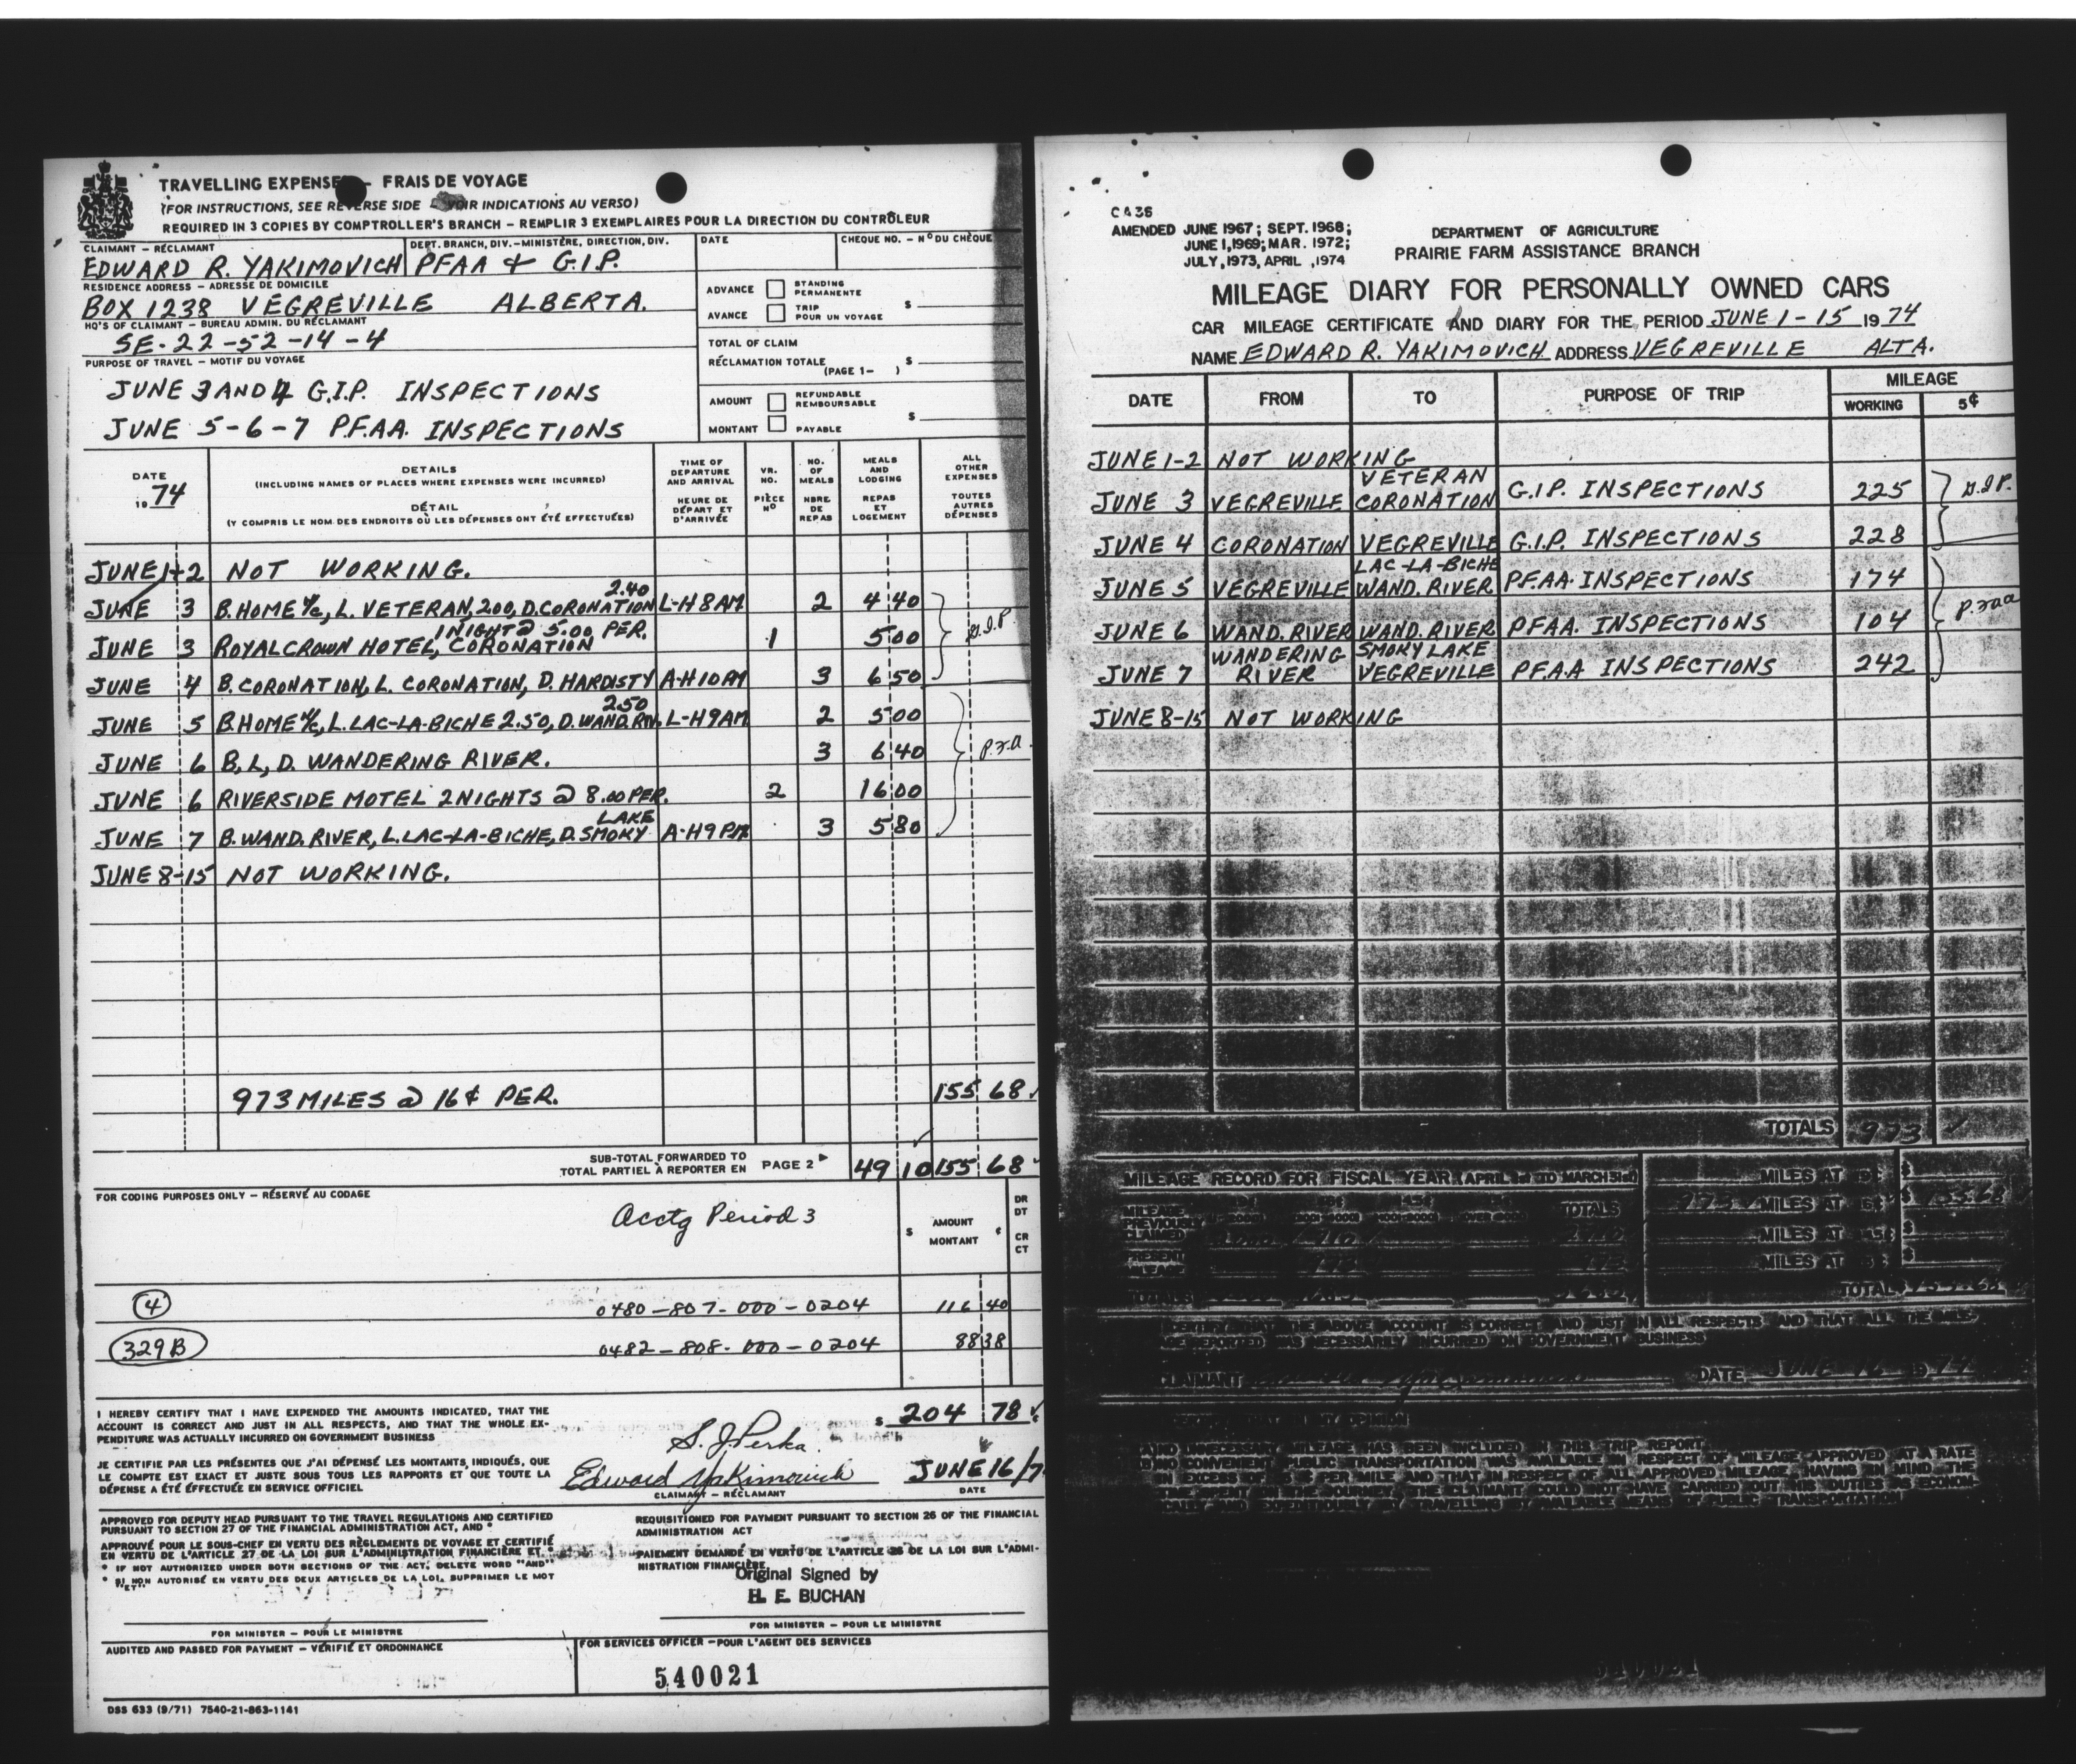 TRAVELLING EXPENSES - FRAIS DE VOYAGE
(FOR INSTRUCTIONS, SEE REVERSE SIDE - VOIR INDICATIONS AU VERSO)
REQUIRED IN 3 COPIES BY COMPTROLLER'S BRANCH - REMPLIR 3 EXEMPLAIRES POUR LA DIRECTION DU CONTRÔLEUR
CLAIMANT - RÉCLAMANT
DEPT. BRANCH, DIV. - MINISTÈRE, DIRECTION, DIV.
DATE
CHEQUE NO. - Nº DU CHÈQUE
EDWARD R. YAKIMOVICH PFAA + G.I.P.
RESIDENCE ADDRESS - ADRESSE DE DOMICILE
BOX 1238 VEGREVILLE ALBERTA.
HQ'S OF CLAIMANT - BUREAU ADMIN. DU RÉCLAMANT
SE-22-52-14-4
PURPOSE OF TRAVEL - MOTIF DU VOYAGE
JUNE 3 AND 4 G.I.P. INSPECTIONS
JUNE 5-6-7 P.F.A.A. INSPECTIONS
ADVANCE STANDING PERMANENTE
AVANCE TRIP POUR UN VOYAGE $
TOTAL OF CLAIM
RÉCLAMATION TOTALE $
(PAGE 1- )
AMOUNT REFUNDABLE REMBOURSABLE
MONTANT PAYABLE $
DATE
1974
DETAILS
(INCLUDING NAMES OF PLACES WHERE EXPENSES WERE INCURRED)
DÉTAIL
(Y COMPRIS LE NOM DES ENDROITS OÙ LES DÉPENSES ONT ÉTÉ EFFECTUÉES)
TIME OF DEPARTURE AND ARRIVAL
HEURE DE DÉPART ET D'ARRIVÉE
VR. NO.
PIÈCE Nº
NO. OF MEALS
NBRE DE REPAS
MEALS AND LODGING
REPAS ET LOGEMENT
ALL OTHER EXPENSES
TOUTES AUTRES DÉPENSES
JUNE 1-2 NOT WORKING.
2.40
JUNE 3 B. HOME N/C, L. VETERAN, 200, D. CORONATION L-H 8 AM 2 4 40
1 NIGHT @ 5.00 PER.
JUNE 3 ROYAL CROWN HOTEL, CORONATION 1 5 00
G.I.P.
JUNE 4 B. CORONATION, L. CORONATION, D. HARDISTY A-H 10 PM 3 6 50
2.50
JUNE 5 B. HOME N/C, L. LAC-LA-BICHE 2.50, D. WAND. RIV. L-H 9 AM 2 5 00
JUNE 6 B, L, D. WANDERING RIVER. 3 6 40
JUNE 6 RIVERSIDE MOTEL 2 NIGHTS @ 8.00 PER. 2 16 00
LAKE
JUNE 7 B. WAND. RIVER, L. LAC-LA-BICHE, D. SMOKY A-H 9 PM 3 5 80
JUNE 8-15 NOT WORKING.
973 MILES @ 16¢ PER. 155 68
SUB-TOTAL FORWARDED TO
TOTAL PARTIEL À REPORTER EN PAGE 2 49 10 155 68
FOR CODING PURPOSES ONLY - RÉSERVÉ AU CODAGE
Acctg Period 3
$ AMOUNT MONTANT ¢
DR DT
CR CT
4 0480-807-000-0204 116 40
329B 0482-808-000-0204 88 38
I HEREBY CERTIFY THAT I HAVE EXPENDED THE AMOUNTS INDICATED, THAT THE
ACCOUNT IS CORRECT AND JUST IN ALL RESPECTS, AND THAT THE WHOLE EX-
PENDITURE WAS ACTUALLY INCURRED ON GOVERNMENT BUSINESS
$ 204 78
S. J. Perka.
JE CERTIFIE PAR LES PRÉSENTES QUE J'AI DÉPENSÉ LES MONTANTS, INDIQUÉS, QUE
LE COMPTE EST EXACT ET JUSTE SOUS TOUS LES RAPPORTS ET QUE TOUTE LA
DÉPENSE A ÉTÉ EFFECTUÉE EN SERVICE OFFICIEL
Edward Yakimovich JUNE 16/7
CLAIMANT - RÉCLAMANT DATE
APPROVED FOR DEPUTY HEAD PURSUANT TO THE TRAVEL REGULATIONS AND CERTIFIED
PURSUANT TO SECTION 27 OF THE FINANCIAL ADMINISTRATION ACT, AND *
APPROUVÉ POUR LE SOUS-CHEF EN VERTU DES RÈGLEMENTS DE VOYAGE ET CERTIFIÉ
EN VERTU DE L'ARTICLE 27 DE LA LOI SUR L'ADMINISTRATION FINANCIÈRE ET *
* IF NOT AUTHORIZED UNDER BOTH SECTIONS OF THE ACT, DELETE WORD "AND"
* SI NON AUTORISÉ EN VERTU DES DEUX ARTICLES DE LA LOI, SUPPRIMER LE MOT
"ET"
REQUISITIONED FOR PAYMENT PURSUANT TO SECTION 26 OF THE FINANCIAL
ADMINISTRATION ACT
PAIEMENT DEMANDÉ EN VERTU DE L'ARTICLE 26 DE LA LOI SUR L'ADMI-
NISTRATION FINANCIÈRE
Original Signed by
H. E. BUCHAN
FOR MINISTER - POUR LE MINISTRE
FOR MINISTER - POUR LE MINISTRE
AUDITED AND PASSED FOR PAYMENT - VÉRIFIÉ ET ORDONNANCE
FOR SERVICES OFFICER - POUR L'AGENT DES SERVICES
540021
DSS 633 (9/71) 7540-21-863-1141
CA 36
AMENDED JUNE 1967; SEPT. 1968;
JUNE 1, 1969; MAR. 1972;
JULY, 1973, APRIL, 1974
DEPARTMENT OF AGRICULTURE
PRAIRIE FARM ASSISTANCE BRANCH
MILEAGE DIARY FOR PERSONALLY OWNED CARS
CAR MILEAGE CERTIFICATE AND DIARY FOR THE PERIOD JUNE 1-15 1974
NAME EDWARD R. YAKIMOVICH ADDRESS VEGREVILLE ALTA.
DATE FROM TO PURPOSE OF TRIP MILEAGE
WORKING 5¢
JUNE 1-2 NOT WORKING
VETERAN
JUNE 3 VEGREVILLE CORONATION G.I.P. INSPECTIONS 225 G.I.P.
JUNE 4 CORONATION VEGREVILLE G.I.P. INSPECTIONS 228
LAC-LA-BICHE
JUNE 5 VEGREVILLE WAND. RIVER P.F.A.A. INSPECTIONS 174
JUNE 6 WAND. RIVER WAND. RIVER P.F.A.A. INSPECTIONS 104 PFAA
WANDERING SMOKY LAKE
JUNE 7 RIVER VEGREVILLE P.F.A.A INSPECTIONS 242
JUNE 8-15 NOT WORKING
TOTALS 973
MILEAGE RECORD FOR FISCAL YEAR (APRIL 1st TO MARCH 31st)
MILEAGE PREVIOUSLY CLAIMED
TOTALS
PRESENT MILEAGE 973
TOTALS
MILES AT
973 MILES AT 16¢ $ 155.68
MILES AT
MILES AT
TOTAL $ 155.68
I CERTIFY THAT THE ABOVE ACCOUNT IS CORRECT AND JUST IN ALL RESPECTS AND THAT ALL THE MILE-
AGE REPORTED WAS NECESSARILY INCURRED ON GOVERNMENT BUSINESS
CLAIMANT DATE JUNE 16 1974
CERTIFIED THAT IN MY OPINION
NO UNNECESSARY MILEAGE HAS BEEN INCLUDED IN THIS TRIP REPORT
NO CONVENIENT PUBLIC TRANSPORTATION WAS AVAILABLE IN RESPECT OF MILEAGE APPROVED AT A RATE
IN EXCESS OF PER MILE AND THAT IN RESPECT OF ALL APPROVED MILEAGE, HAVING IN MIND THE
TIME SPENT ON THE JOURNEY, THE CLAIMANT COULD NOT HAVE CARRIED OUT HIS DUTIES AS ECONOM-
ICALLY AND EXPEDITIOUSLY BY TRAVELLING BY AVAILABLE MEANS OF PUBLIC TRANSPORTATION
540021